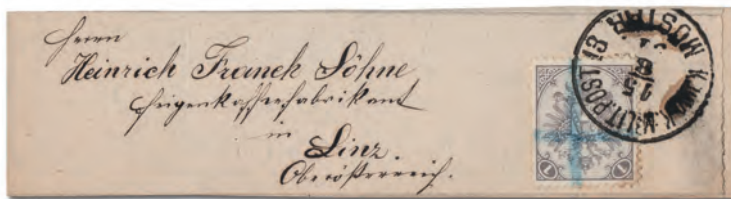 Herrn
Heinrich Franck Söhne
Feigenkaffeefabrikant
in
Linz.
Oberösterreich.
K.u.K. MILIT. POST 13
MOSTAR
1
1